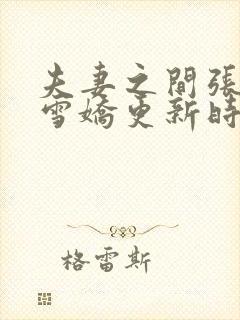 夫妻之間張
雪嬌更新時
格雷斯